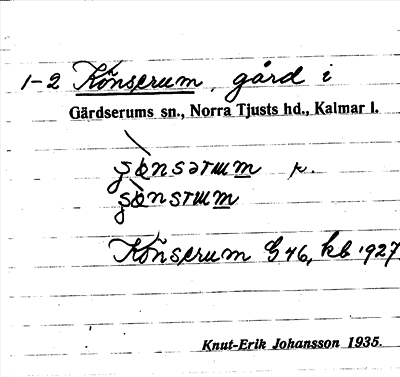 1-2 Könserum, gård i
Gärdserums sn., Norra Tjusts hd., Kalmar l.
k.
Könserum G 46, kb 1927
Knut-Erik Johansson 1935.